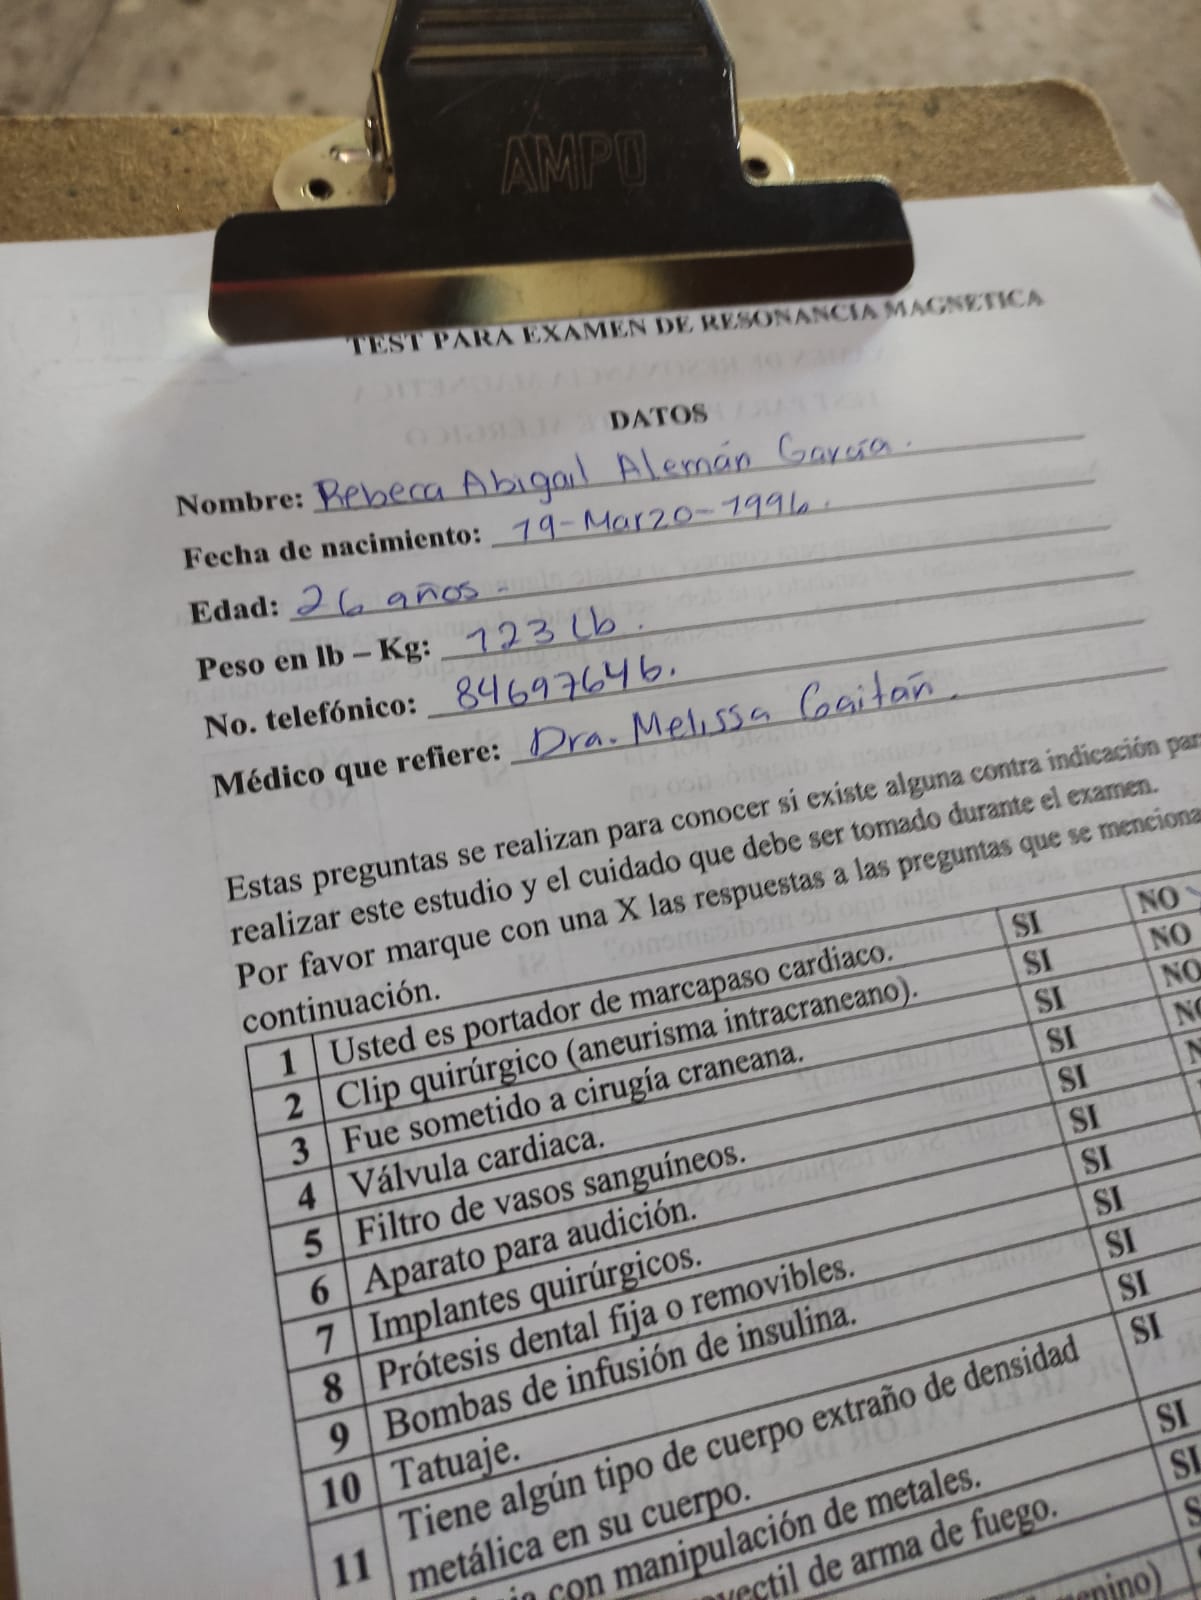 AMPO
TEST PARA EXAMEN DE RESONANCIA MAGNETICA
DATOS
Nombre: Rebeca Abigail Alemán García.
Fecha de nacimiento: 19-Marzo-1996.
Edad: 26 años.
Peso en lb – Kg: 123 Lb.
No. telefónico: 84697646.
Médico que refiere: Dra. Melissa Gaitán.
Estas preguntas se realizan para conocer si existe alguna contra indicación par
realizar este estudio y el cuidado que debe ser tomado durante el examen.
Por favor marque con una X las respuestas a las preguntas que se menciona
continuación.
1 Usted es portador de marcapaso cardiaco. SI NO
2 Clip quirúrgico (aneurisma intracraneano). SI NO
3 Fue sometido a cirugía craneana. SI NO
4 Válvula cardiaca. SI NO
5 Filtro de vasos sanguíneos. SI N
6 Aparato para audición. SI
7 Implantes quirúrgicos. SI
8 Prótesis dental fija o removibles. SI
9 Bombas de infusión de insulina. SI
10 Tatuaje. SI
11 Tiene algún tipo de cuerpo extraño de densidad SI
metálica en su cuerpo.
con manipulación de metales. SI
yectil de arma de fuego. SI
enino) S